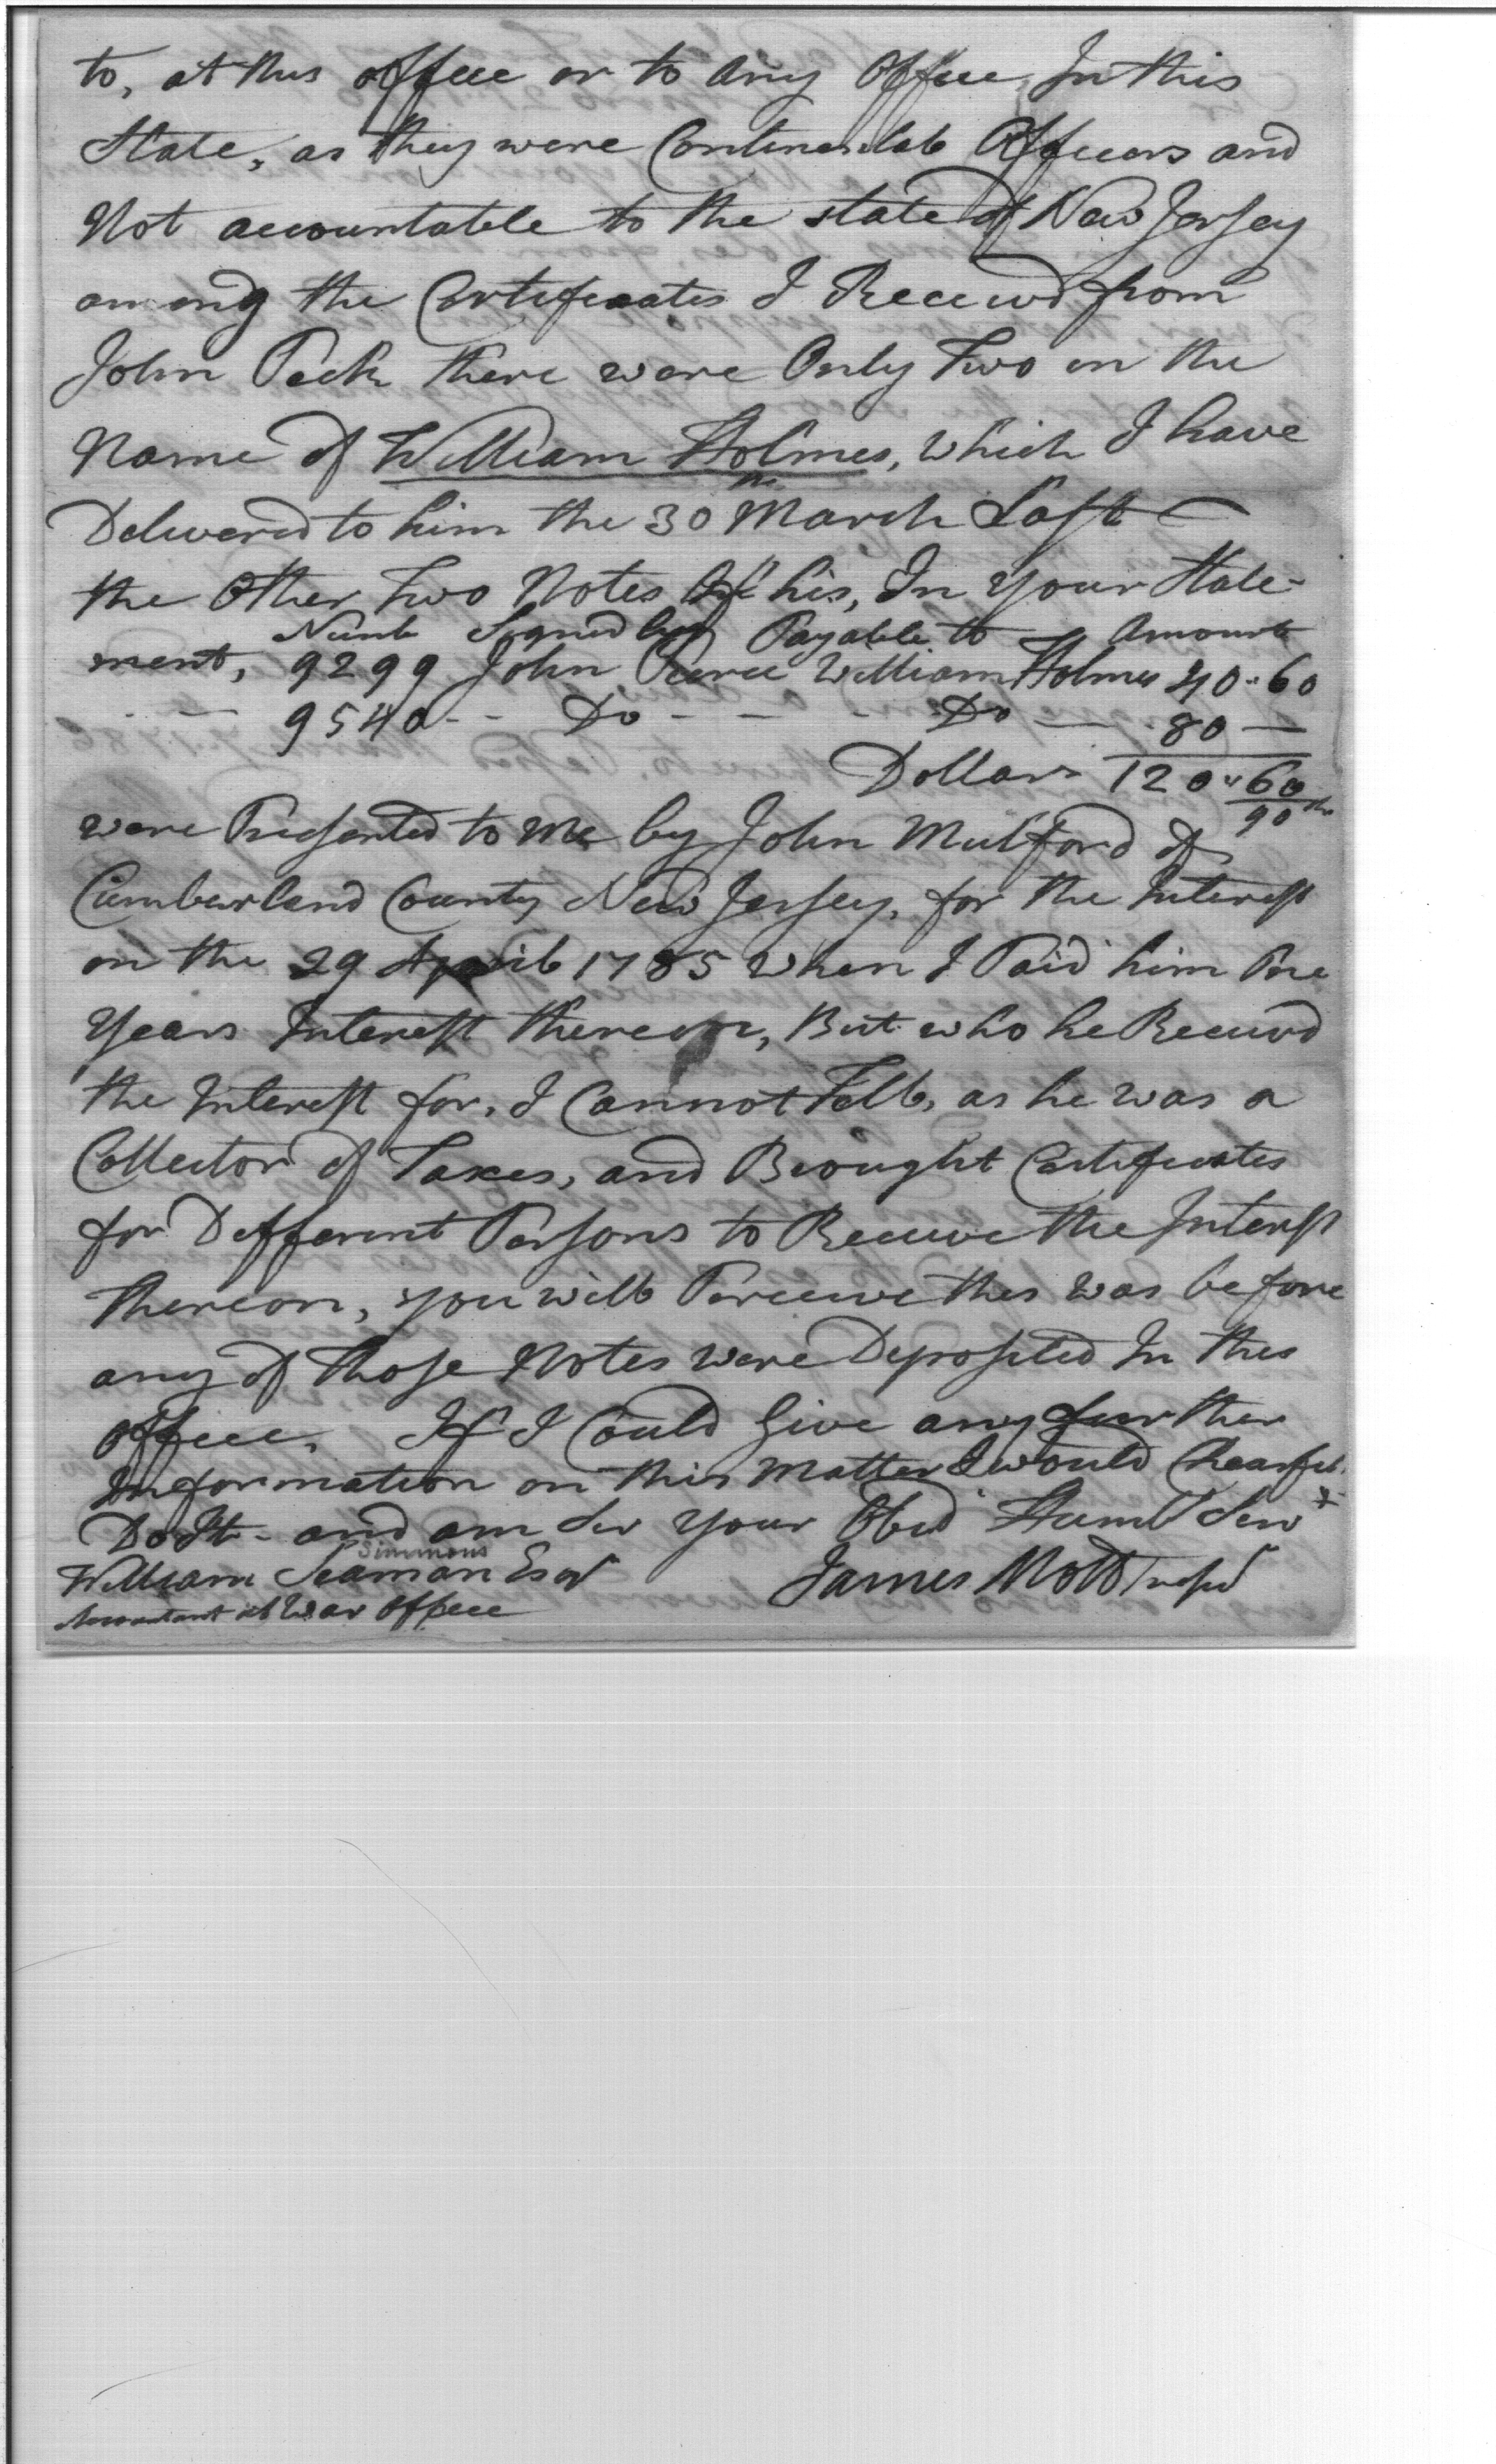 to, at this office or to Any Office In this
State, as they were Continental Officers and
Not accountable to the state of New Jersey
among the Certificates I Received from
John Peck there were Only Two in the
Name of William Holmes, which I have
Delivered to him the 30th March Last
the Other Two Notes Of his, In Your State-
Numb Signed by Payable to Amount
ment, 9299 John Pierce William Holmes 40 " 60
- - 9540 - - Do - - - Do — 80 —
Dollars 120 " 60
90ths
were Presented to Me by John Mulford of
Cumberland County New Jersey, for the Interest
on the 29 April 1785 when I Paid him One
Years Interest thereon, But who he Received
the Interest for, I Cannot Tell, as he was a
Collector of Taxes, and Brought Certificates
for Different Persons to Receive the Interest
thereon, you will Perceive this was before
any of those Notes were Deposited In this
office. If I Could Give any further
Information on this Matter I would Chearful
Do It - and am Sir Your Obed Humb Serv
Simmons
William Seaman Esqr
James Mott
Accountant at War Office